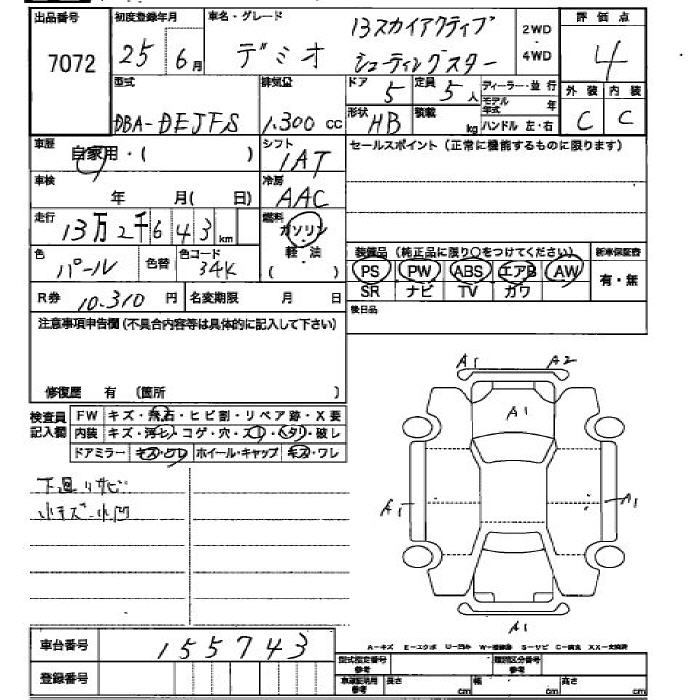 出品番号 初度登録年月 車名・グレード 13スカイアクティブ 2WD 評価点
7072 25 6月 デミオ シューティングスター 4WD 4
型式 排気量 ドア 定員 ディーラー・並行 外装 内装
DBA-DEJFS 1.300cc 5 5人 モデル年式 年 C C
形状 HB 積載 kg ハンドル 左・右
車歴 自家用・( ) シフト 1AT セールスポイント(正常に機能するものに限ります)
車検 年 月( 日) 冷房 AAC
走行 13万2千643km 燃料 ガソリン
色 パール 色替 色コード 34K 軽油 ( )
装備品(純正品に限り○をつけてください) 新車保証書
PS PW ABS エアB AW 有・無
SR ナビ TV ガワ
R券 10.310円 名変期限 月 日 後日品
注意事項申告欄(不具合内容等は具体的に記入して下さい)
修復歴 有 (箇所 )
A1 A2
A1
検査員記入欄 FW キズ・飛石・ヒビ割・リペア跡・X要
内装 キズ・汚ヒ・コゲ・穴・スレ・ヘタリ・破レ
ドアミラー キズ・ワレ ホイール・キャップ キズ・ワレ
下廻りサビ
小キズ小凹
A1 A1
A1
A-キズ E-エクボ U-凹み W-補修跡 S-サビ C-腐食 XX-交換済
車台番号 155743
型式指定番号 参考 類別区分番号 参考
登録番号 車庫証明用 参考 長さ cm 幅 cm 高さ cm